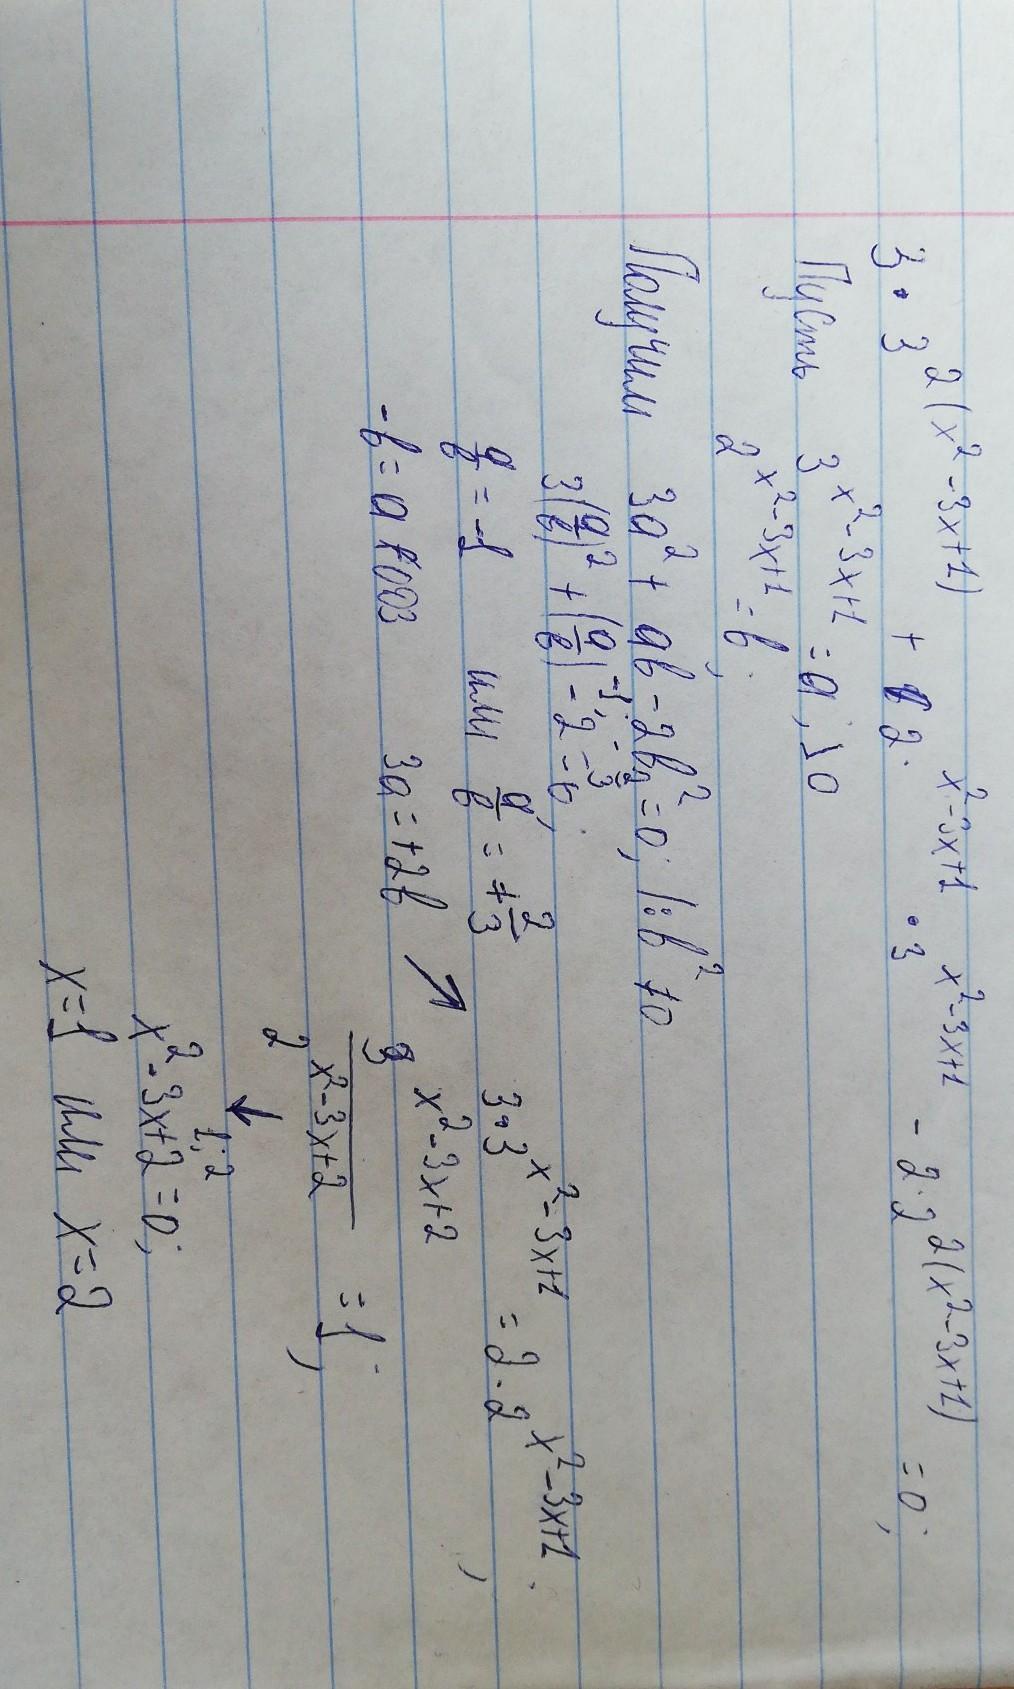 3·3^2(x²-3x+1) + 2^x²-3x+1 · 3^x²-3x+1 - 2·2^2(x²-3x+1) = 0;
Пусть 3^x²-3x+1 = a; >0
2^x²-3x+1 = b;
Получим 3a² + ab - 2b² = 0; |:b² ≠0
3(a/b)² + (a/b) - 2 = 0;
a/b = -1 или a/b = +2/3
-b = a 3a = +2b ↗ 3·3^x²-3x+1 = 2·2^x²-3x+1;
3^x²-3x+2
/ 2^x²-3x+2 = 1;
↓
1; 2
x² - 3x + 2 = 0;
x=1 или x=2